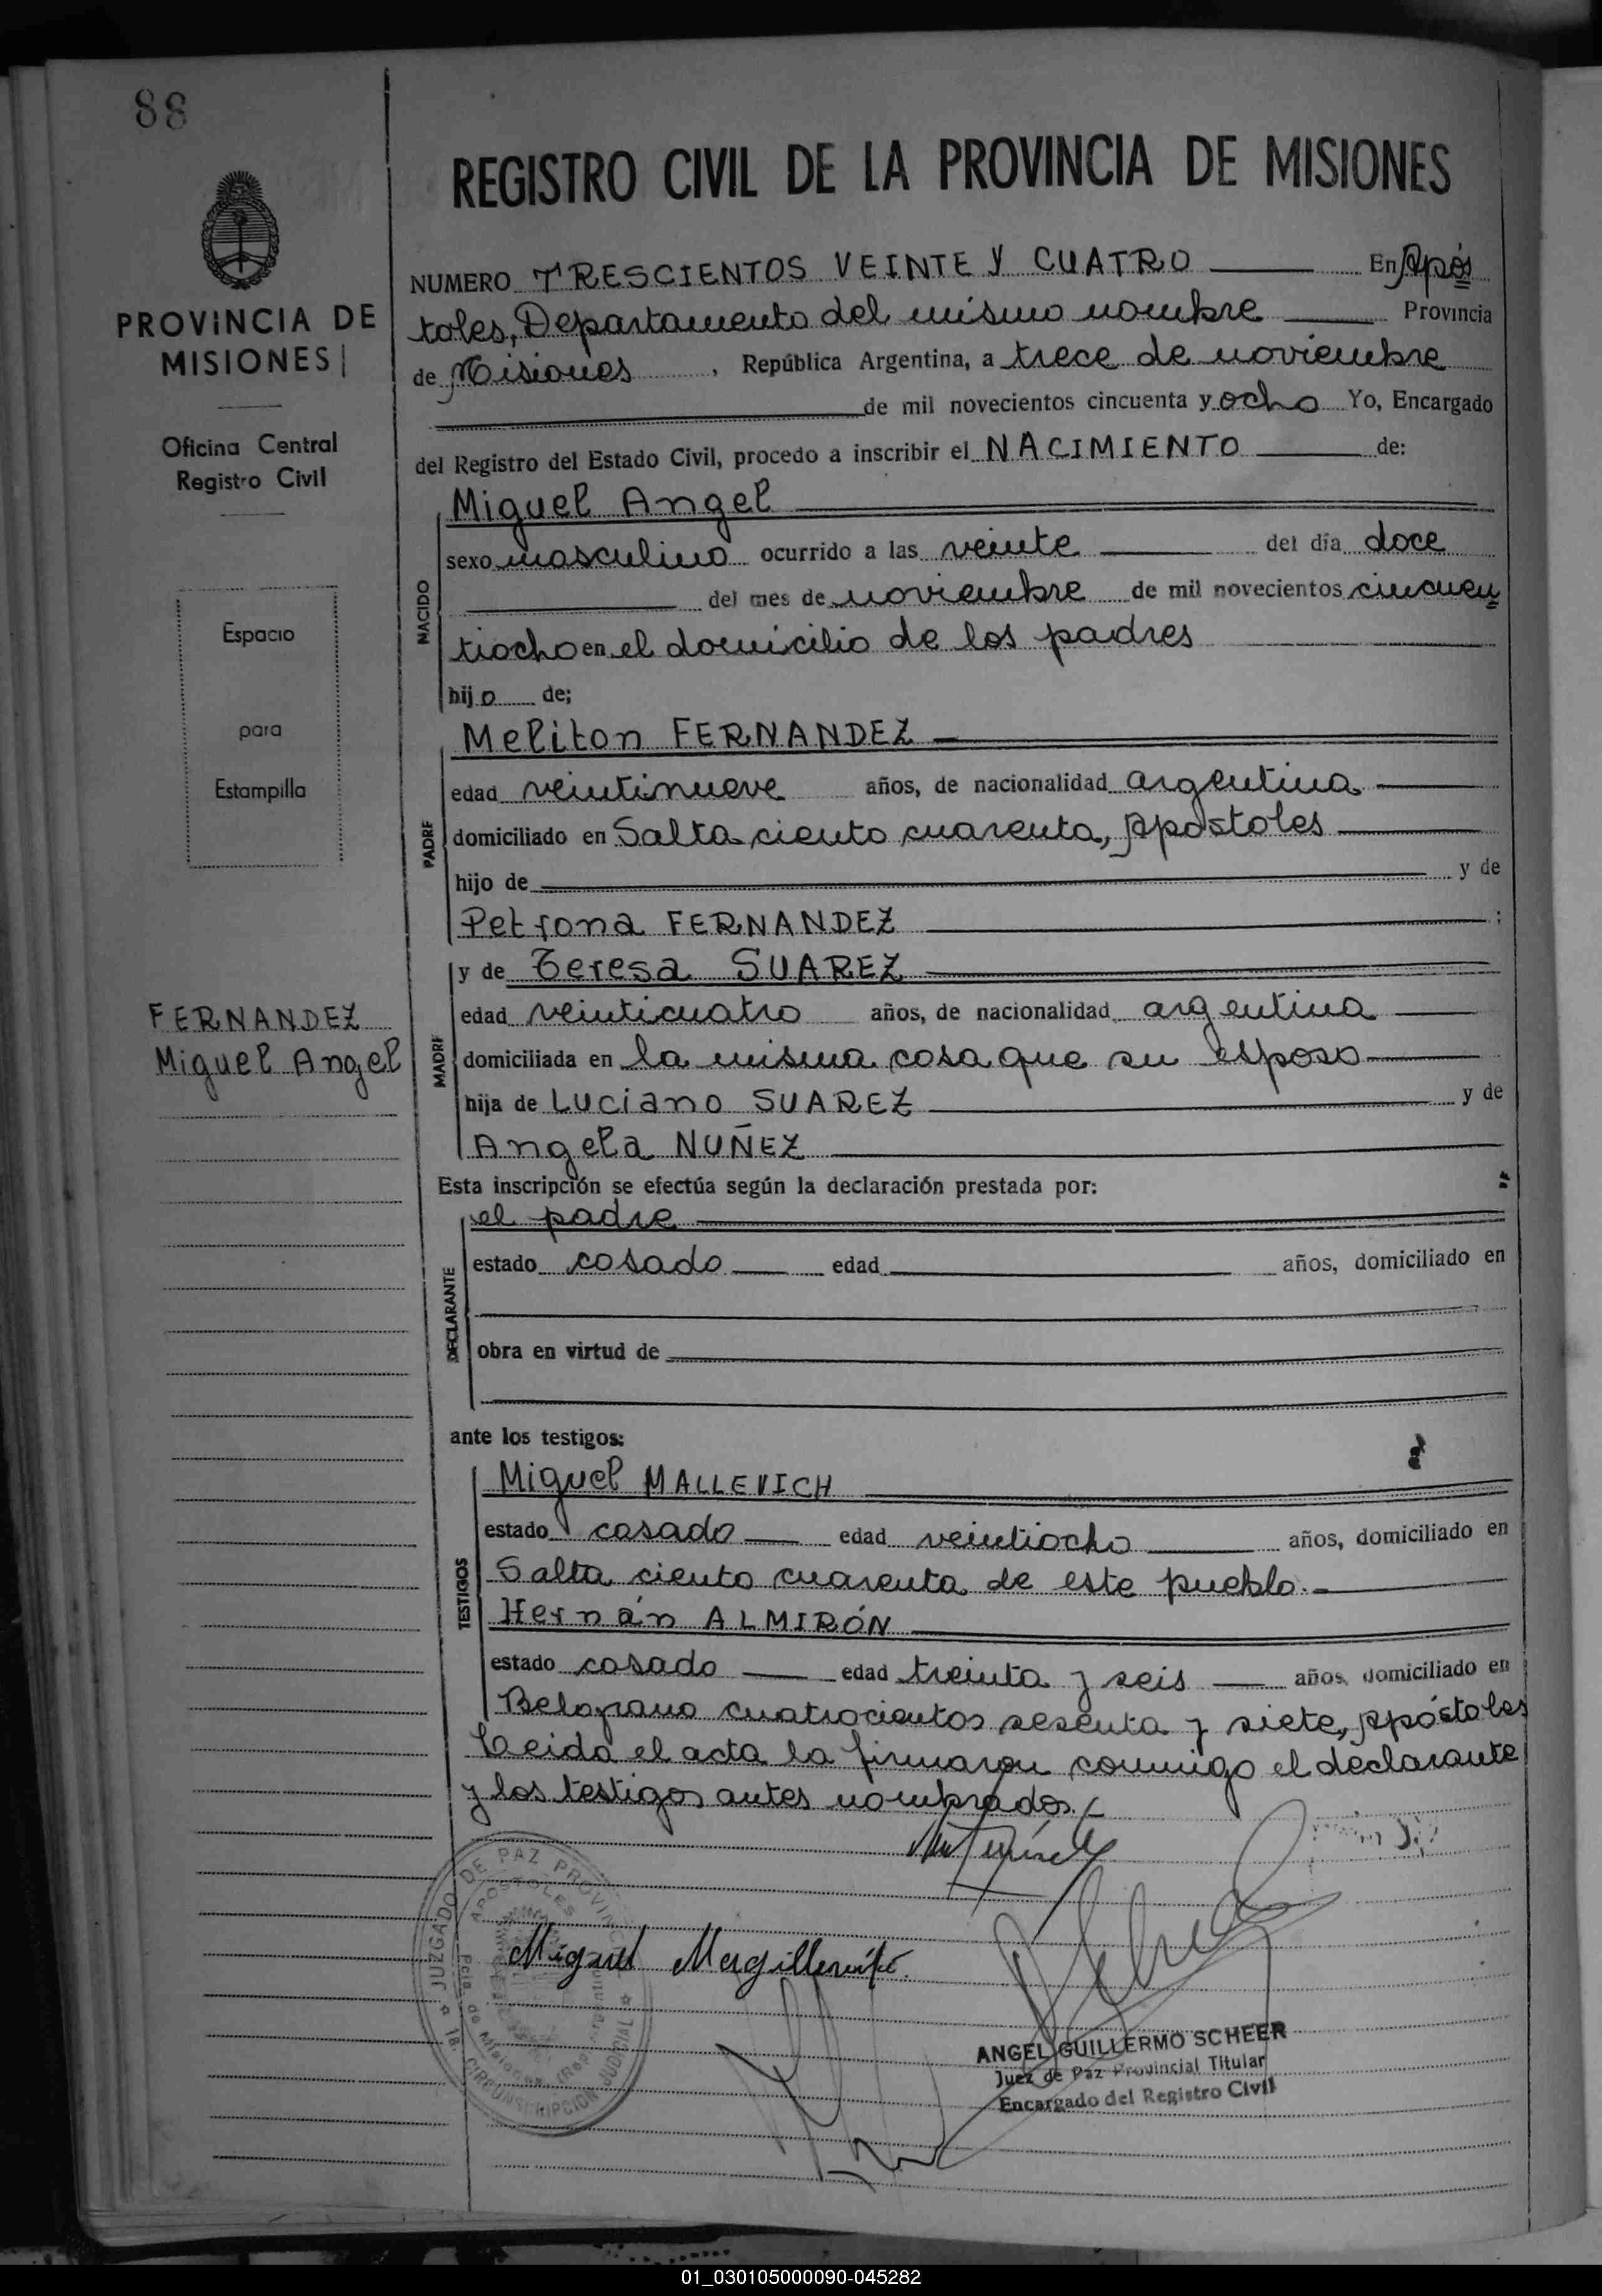 88
REGISTRO CIVIL DE LA PROVINCIA DE MISIONES
PROVINCIA DE
MISIONES
Oficina Central
Registro Civil
Espacio
para
Estampilla
FERNANDEZ
Miguel Angel
NUMERO TRESCIENTOS VEINTE Y CUATRO En Após
toles, Departamento del mismo nombre Provincia
de Misiones, República Argentina, a trece de noviembre
de mil novecientos cincuenta y ocho Yo, Encargado
del Registro del Estado Civil, procedo a inscribir el NACIMIENTO de:
NACIDO
Miguel Angel
sexo masculino ocurrido a las veinte del día doce
del mes de noviembre de mil novecientos cincuen
tiocho en el domicilio de los padres
hijo de;
PADRE
Meliton FERNANDEZ
edad veintinueve años, de nacionalidad argentina
domiciliado en Salta ciento cuarenta, Apostoles
hijo de y de
Petrona FERNANDEZ ;
MADRE
y de Teresa SUAREZ
edad veinticuatro años, de nacionalidad argentina
domiciliada en la misma casa que su esposo
hija de Luciano SUAREZ y de
Angela NUÑEZ
Esta inscripción se efectúa según la declaración prestada por:
DECLARANTE
el padre
estado casado edad años, domiciliado en
obra en virtud de
ante los testigos:
TESTIGOS
Miguel MALLEVICH
estado casado edad veintiocho años, domiciliado en
Salta ciento cuarenta de este pueblo.
Hernán ALMIRÓN
estado casado edad treinta y seis años, domiciliado en
Belgrano cuatrocientos sesenta y siete, Apóstoles
Leida el acta la firmaron conmigo el declarante
y los testigos antes nombrados.
JUZGADO DE PAZ PROVINCIAL
APOSTOLES
CIRCUNSCRIPCION JUDICIAL
Miguel
ANGEL GUILLERMO SCHEER
Juez de Paz Provincial Titular
Encargado del Registro Civil
01_030105000090-045282